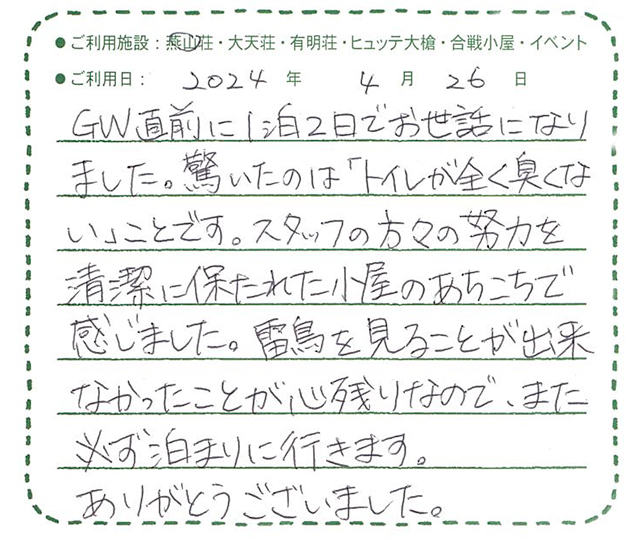 ●ご利用施設：燕山荘・大天荘・有明荘・ヒュッテ大槍・合戦小屋・イベント
●ご利用日： 2024 年 4 月 26 日
GW直前に1泊2日でお世話になり
ました。驚いたのは「トイレが全く臭くな
い」ことです。スタッフの方々の努力を
清潔に保たれた小屋のあちこちで
感じました。雷鳥を見ることが出来
なかったことが心残りなので、また
必ず泊まりに行きます。
ありがとうございました。